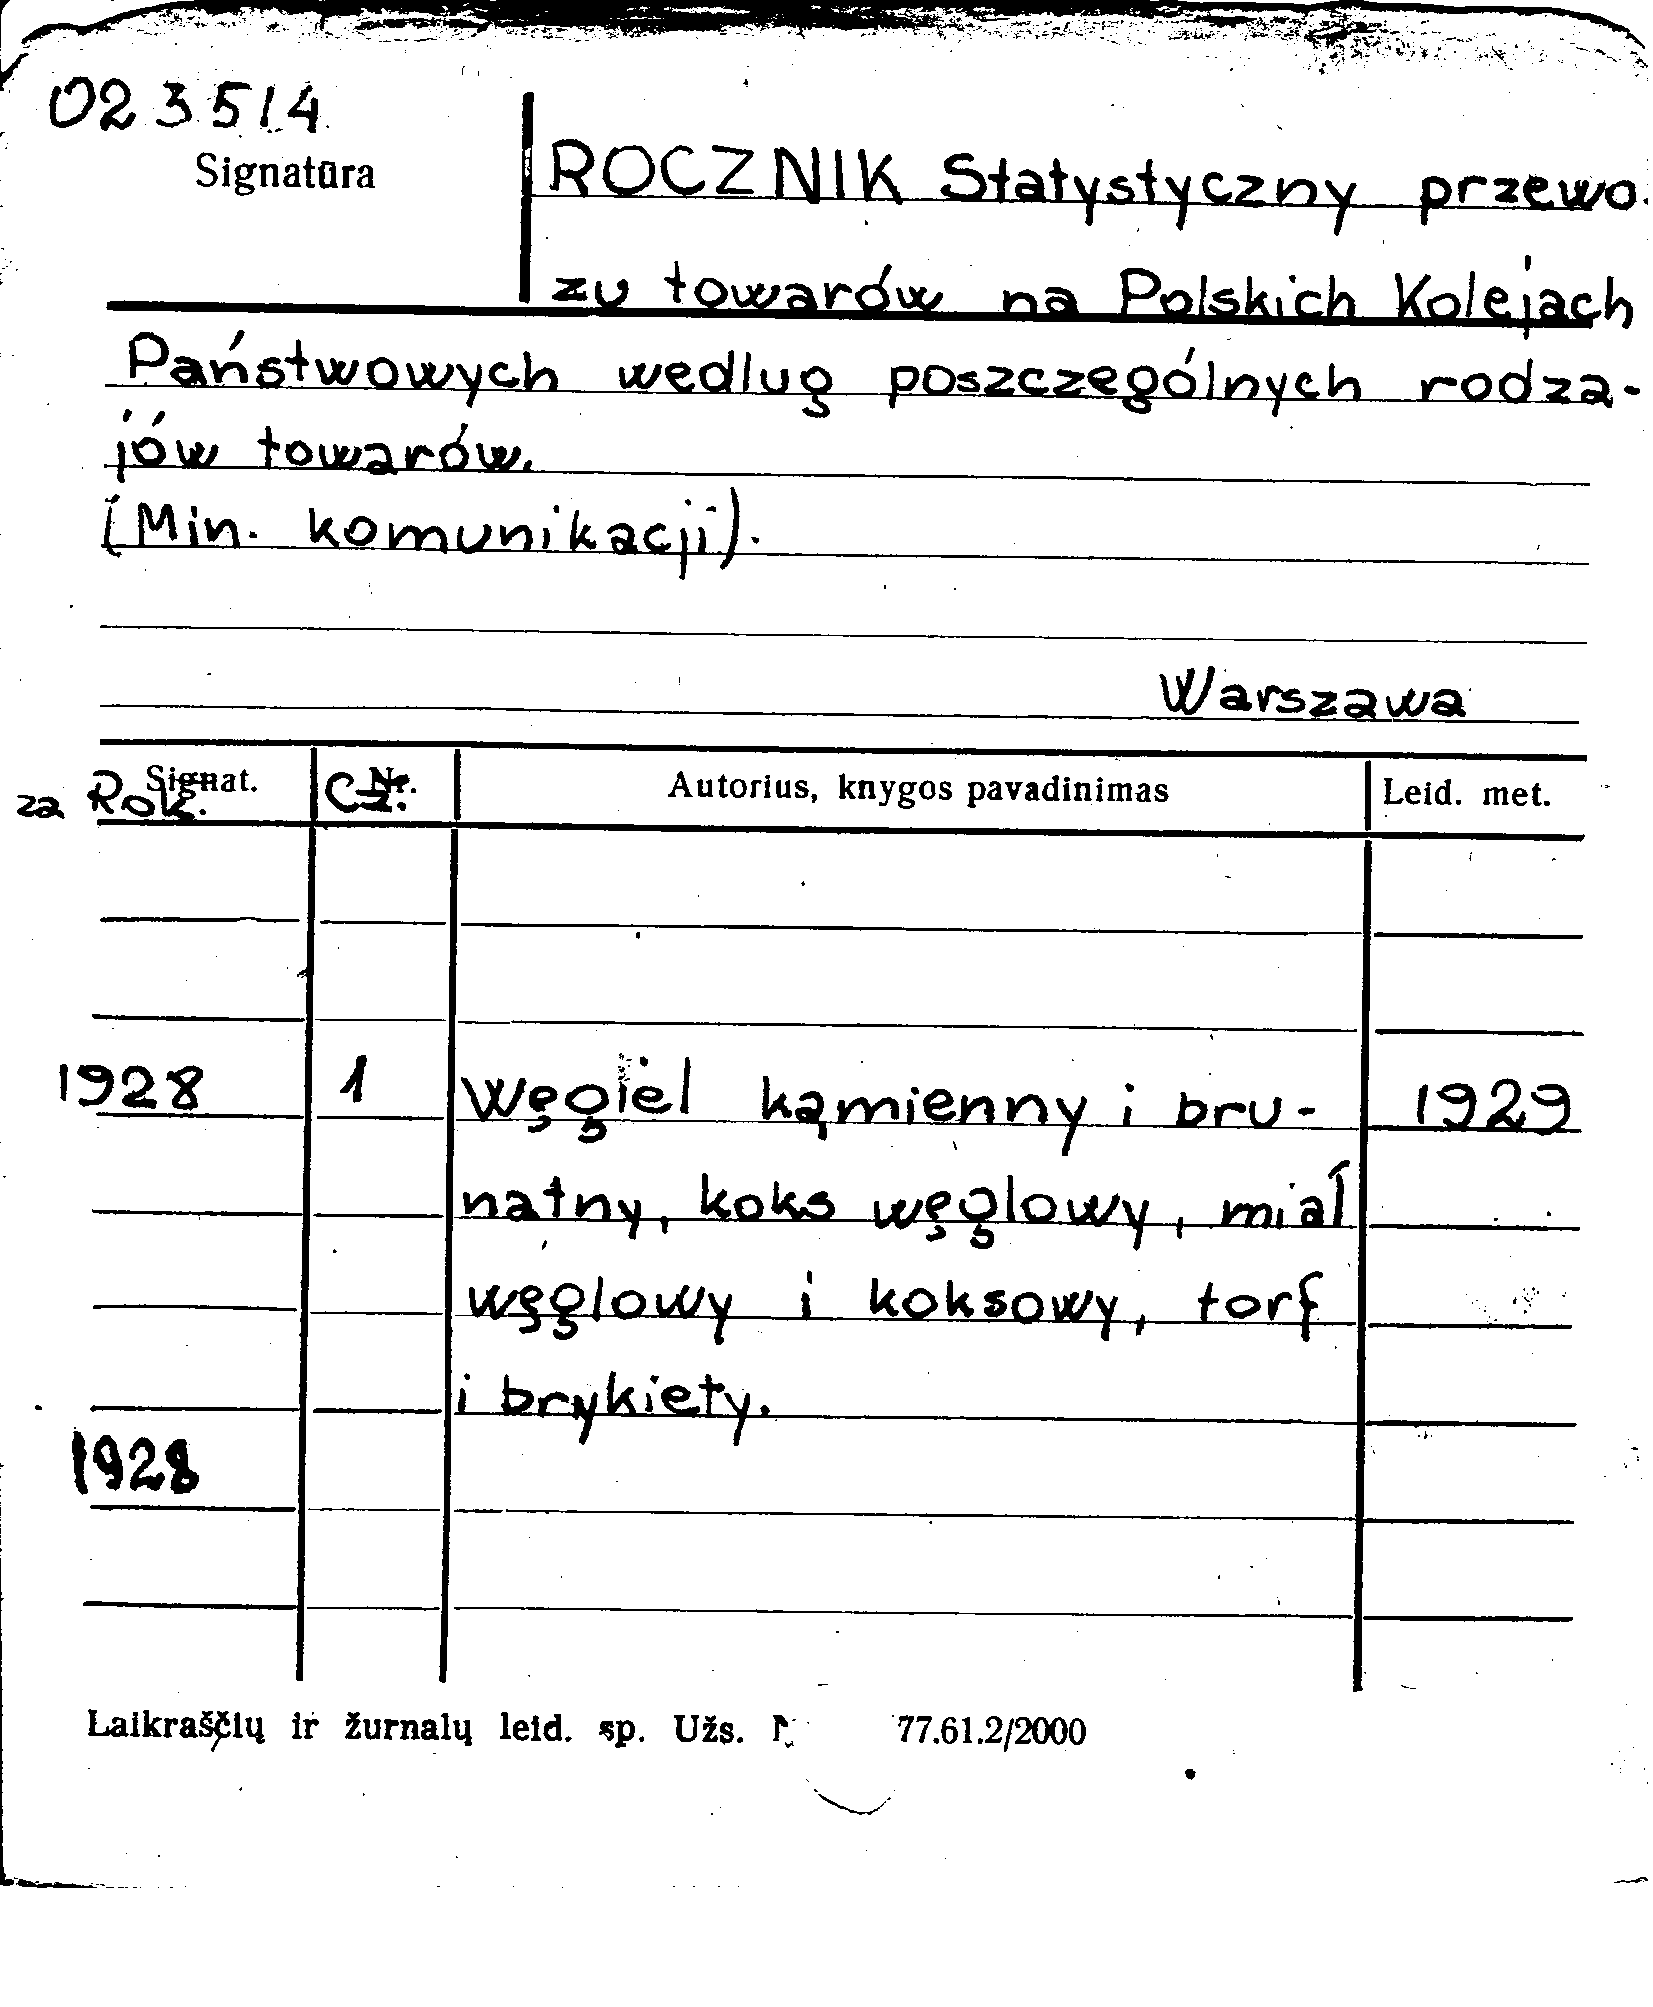 023514
Signatūra
ROCZNIK Statystyczny przewo-
zu towarów na Polskich Kolejach
Państwowych wedlug poszczególnych rodza-
jów towarów.
(Min. komunikacji).
Warszawa
Signat. Nr. Autorius, knygos pavadinimas Leid. met.
za Rok. Cz.
1928 1 Węgiel kąmienny i bru- 1929
natny, koks węglowy, miał
węglowy i koksowy, torf
i brykiety.
1928
Laikraščių ir žurnalų leid. sp. Užs. 77.61.2/2000